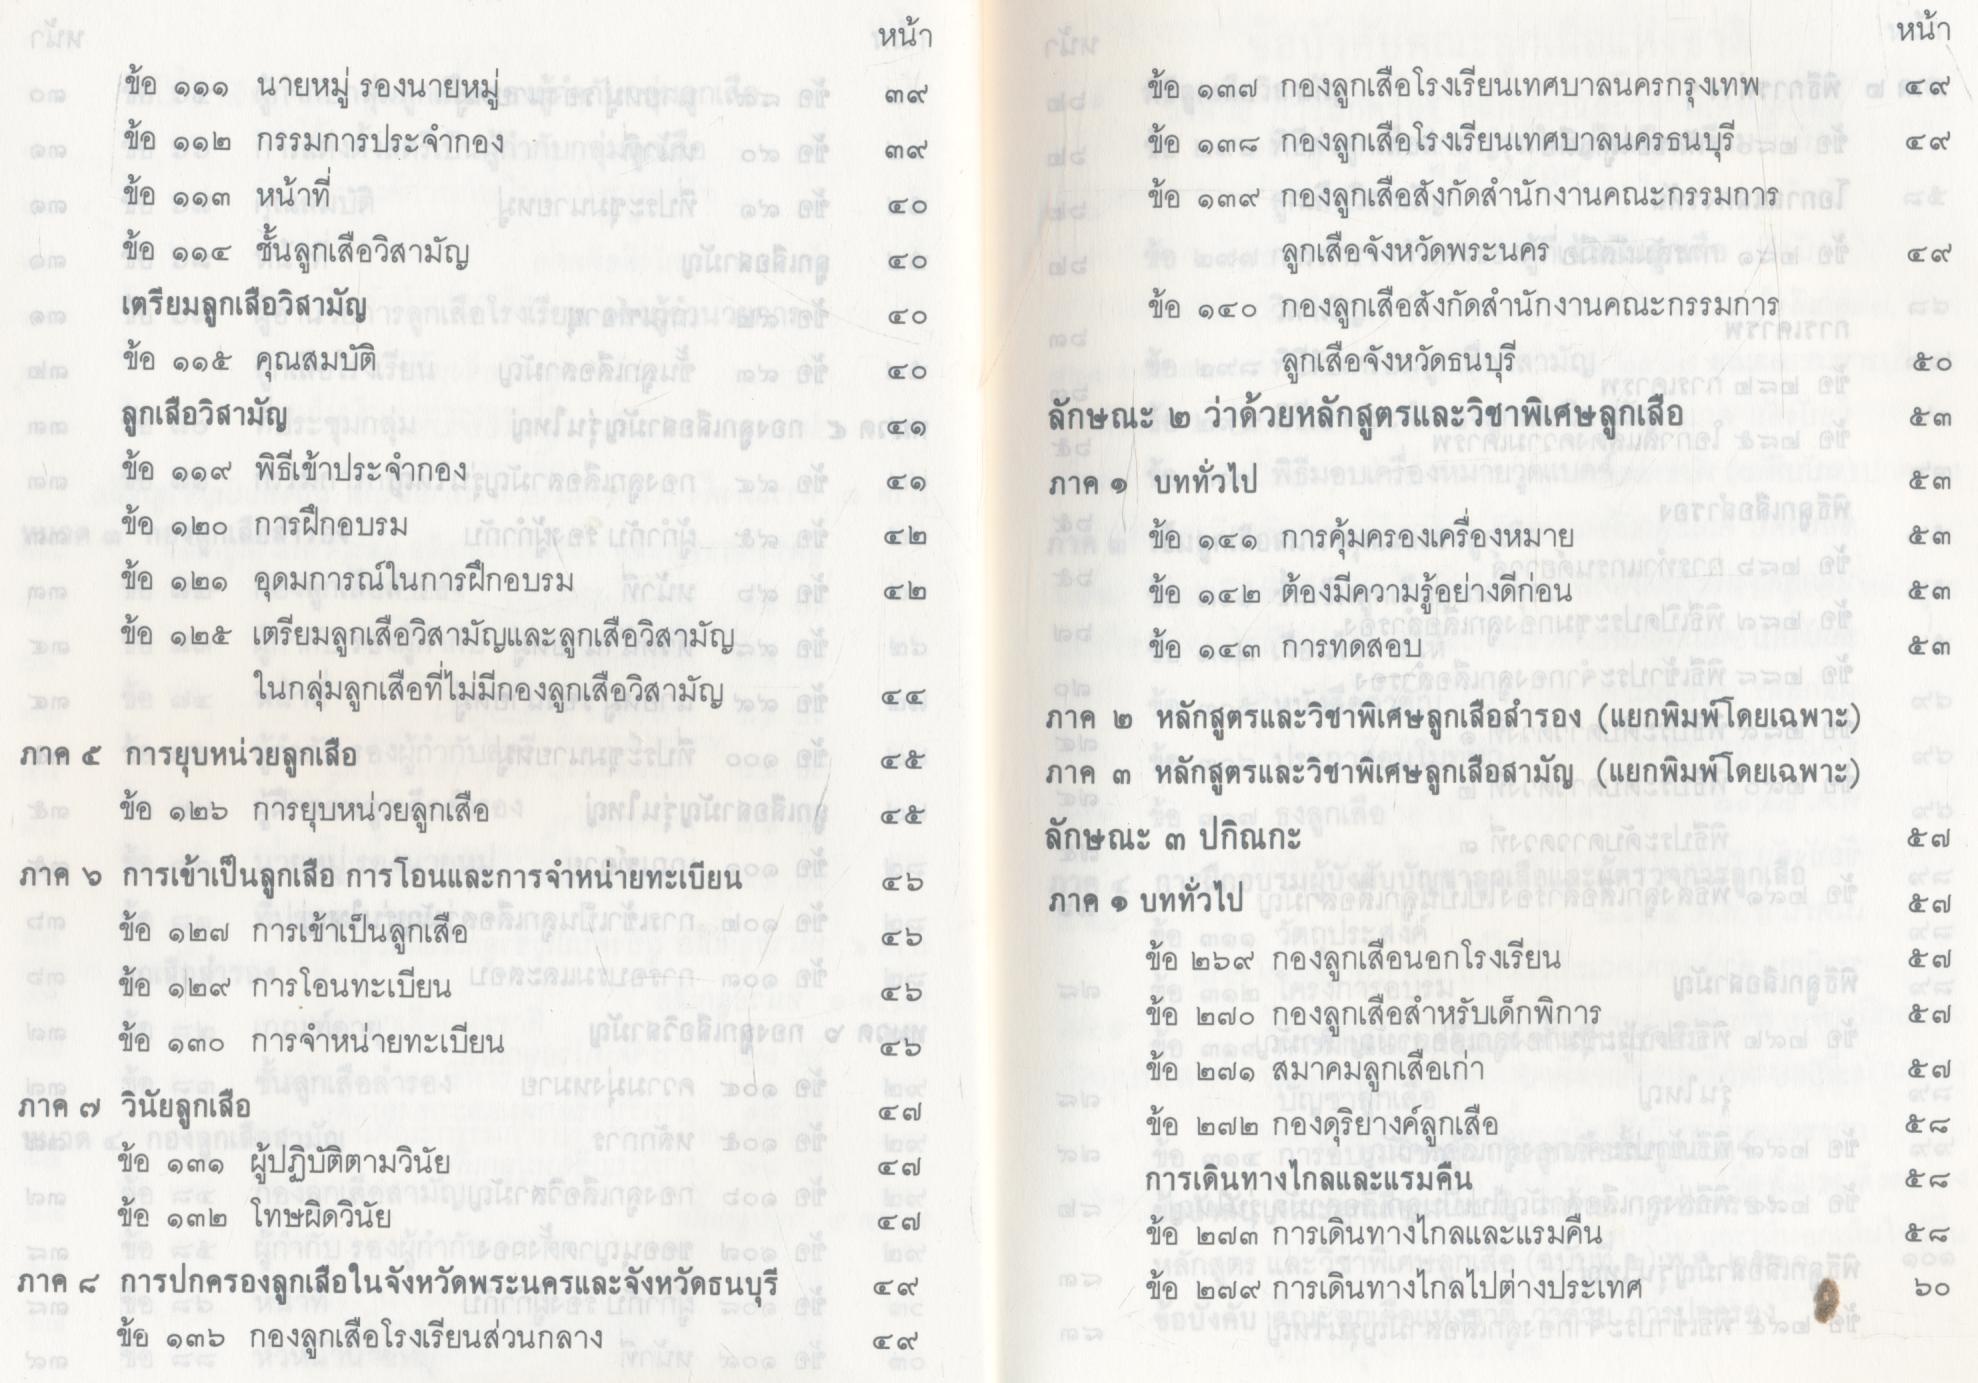 หน้า
ข้อ ๑๑๑ นายหมู่ รองนายหมู่ ๓๙
ข้อ ๑๑๒ กรรมการประจำกอง ๓๙
ข้อ ๑๑๓ หน้าที่ ๔๐
ข้อ ๑๑๔ ชั้นลูกเสือวิสามัญ ๔๐
เตรียมลูกเสือวิสามัญ ๔๐
ข้อ ๑๑๕ คุณสมบัติ ๔๐
ลูกเสือวิสามัญ ๔๑
ข้อ ๑๑๙ พิธีเข้าประจำกอง ๔๑
ข้อ ๑๒๐ การฝึกอบรม ๔๒
ข้อ ๑๒๑ อุดมการณ์ในการฝึกอบรม ๔๒
ข้อ ๑๒๕ เตรียมลูกเสือวิสามัญและลูกเสือวิสามัญ
ในกลุ่มลูกเสือที่ไม่มีกองลูกเสือวิสามัญ ๔๔
ภาค ๕ การยุบหน่วยลูกเสือ ๔๕
ข้อ ๑๒๖ การยุบหน่วยลูกเสือ ๔๕
ภาค ๖ การเข้าเป็นลูกเสือ การโอนและการจำหน่ายทะเบียน ๔๖
ข้อ ๑๒๗ การเข้าเป็นลูกเสือ ๔๖
ข้อ ๑๒๙ การโอนทะเบียน ๔๖
ข้อ ๑๓๐ การจำหน่ายทะเบียน ๔๖
ภาค ๗ วินัยลูกเสือ ๔๗
ข้อ ๑๓๑ ผู้ปฏิบัติตามวินัย ๔๗
ข้อ ๑๓๒ โทษผิดวินัย ๔๗
ภาค ๘ การปกครองลูกเสือในจังหวัดพระนครและจังหวัดธนบุรี ๔๙
ข้อ ๑๓๖ กองลูกเสือโรงเรียนส่วนกลาง ๔๙
หน้า
ข้อ ๑๓๗ กองลูกเสือโรงเรียนเทศบาลนครกรุงเทพ ๔๙
ข้อ ๑๓๘ กองลูกเสือโรงเรียนเทศบาลนครธนบุรี ๔๙
ข้อ ๑๓๙ กองลูกเสือสังกัดสำนักงานคณะกรรมการ
ลูกเสือจังหวัดพระนคร ๔๙
ข้อ ๑๔๐ กองลูกเสือสังกัดสำนักงานคณะกรรมการ
ลูกเสือจังหวัดธนบุรี ๕๐
ลักษณะ ๒ ว่าด้วยหลักสูตรและวิชาพิเศษลูกเสือ ๕๓
ภาค ๑ บททั่วไป ๕๓
ข้อ ๑๔๑ การคุ้มครองเครื่องหมาย ๕๓
ข้อ ๑๔๒ ต้องมีความรู้อย่างดีก่อน ๕๓
ข้อ ๑๔๓ การทดสอบ ๕๓
ภาค ๒ หลักสูตรและวิชาพิเศษลูกเสือสำรอง (แยกพิมพ์โดยเฉพาะ)
ภาค ๓ หลักสูตรและวิชาพิเศษลูกเสือสามัญ (แยกพิมพ์โดยเฉพาะ)
ลักษณะ ๓ ปกิณกะ ๕๗
ภาค ๑ บททั่วไป ๕๗
ข้อ ๒๖๙ กองลูกเสือนอกโรงเรียน ๕๗
ข้อ ๒๗๐ กองลูกเสือสำหรับเด็กพิการ ๕๗
ข้อ ๒๗๑ สมาคมลูกเสือเก่า ๕๗
ข้อ ๒๗๒ กองดุริยางค์ลูกเสือ ๕๘
การเดินทางไกลและแรมคืน ๕๘
ข้อ ๒๗๓ การเดินทางไกลและแรมคืน ๕๘
ข้อ ๒๗๙ การเดินทางไกลไปต่างประเทศ ๖๐